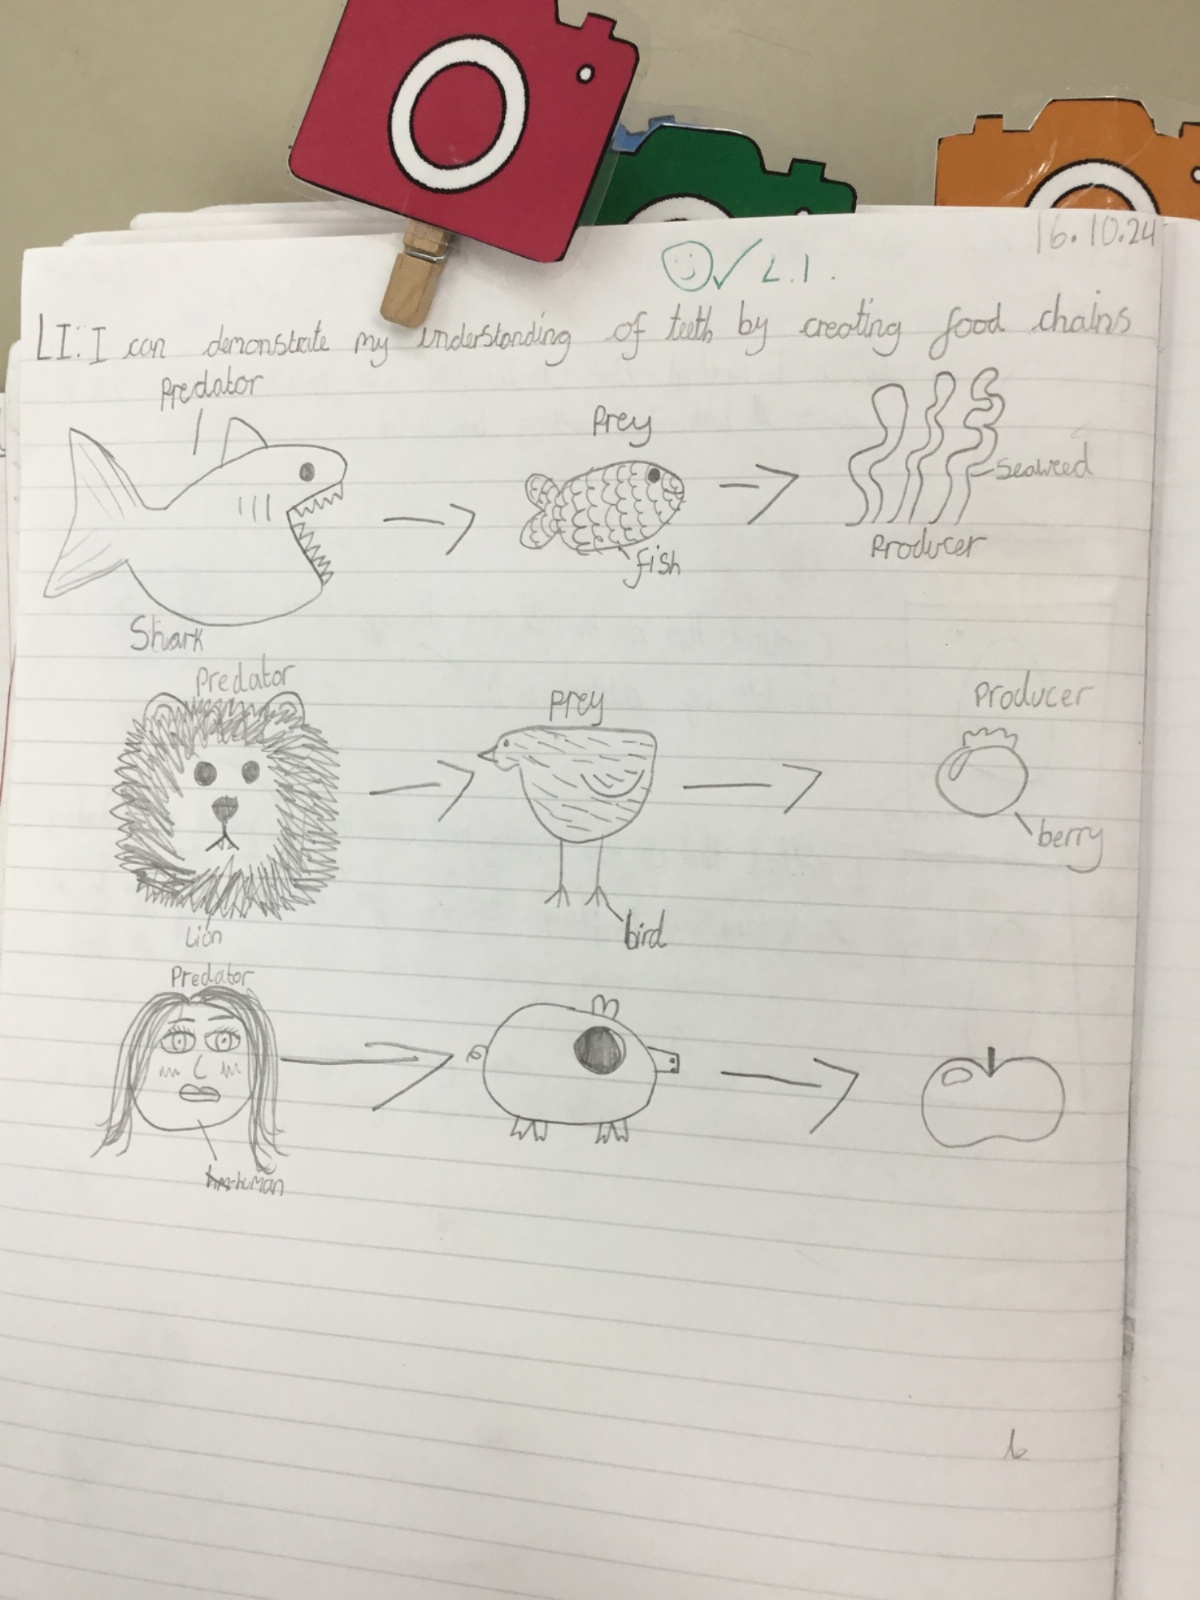 16.10.24
✓ L.I.
LI: I can demonstrate my understanding of teeth by creating food chains
Predator
Prey
Seaweed
Producer
fish
Shark
Predator
Prey
Producer
berry
bird
Lion
Predator
human